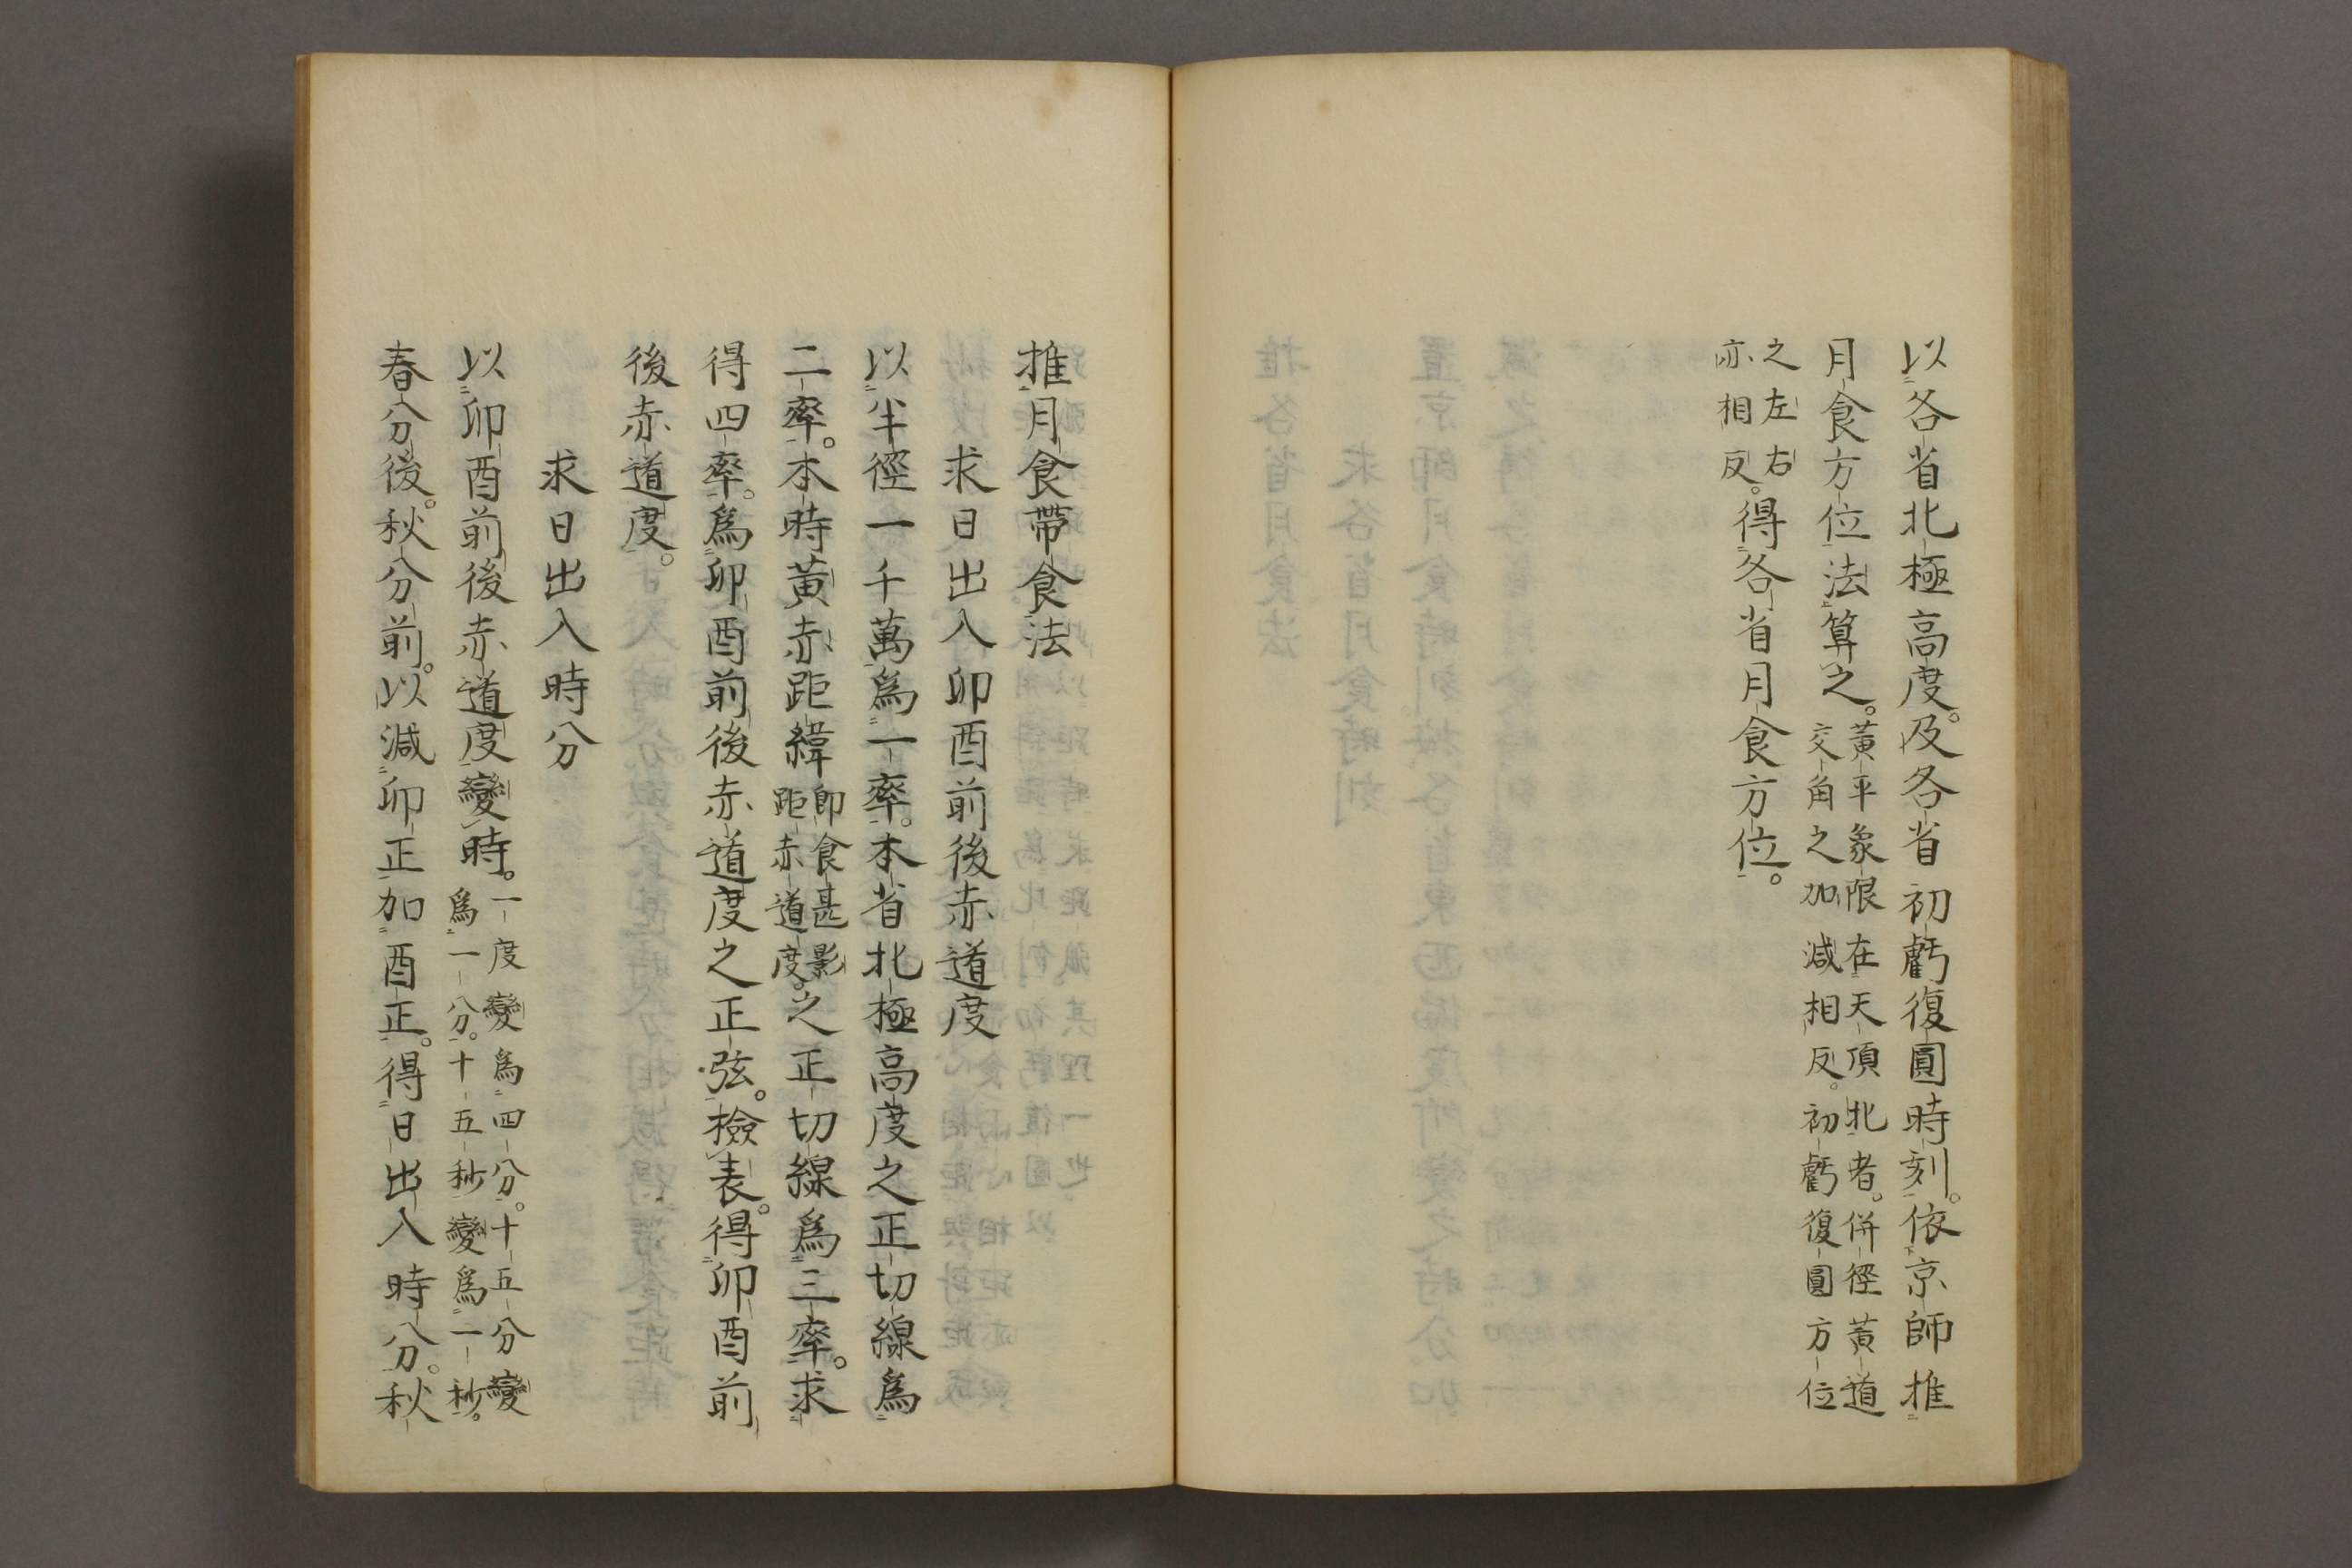 以各省北極高度。及各省初虧復圓時刻。依京師推
月食方位法算之。黃平象限在天頂北者。併徑黃道
交角之加減相反。初虧復圓方位
之左右
亦相反。得各省月食方位。
推月食帶食法
求日出入卯酉前後赤道度
以半徑一千萬爲一率。本省北極高度之正切線爲
二率。本時黃赤距緯即食甚影
距赤道度。之正切線爲三率。求
得四率。爲卯酉前後赤道度之正弦。檢表。得卯酉前
後赤道度。
求日出入時分
以卯酉前後赤道度變時。一度變爲四分。十五分變
爲一分。十五秒變爲一秒。
春分後。秋分前。以減卯正加酉正。得日出入時分。秋